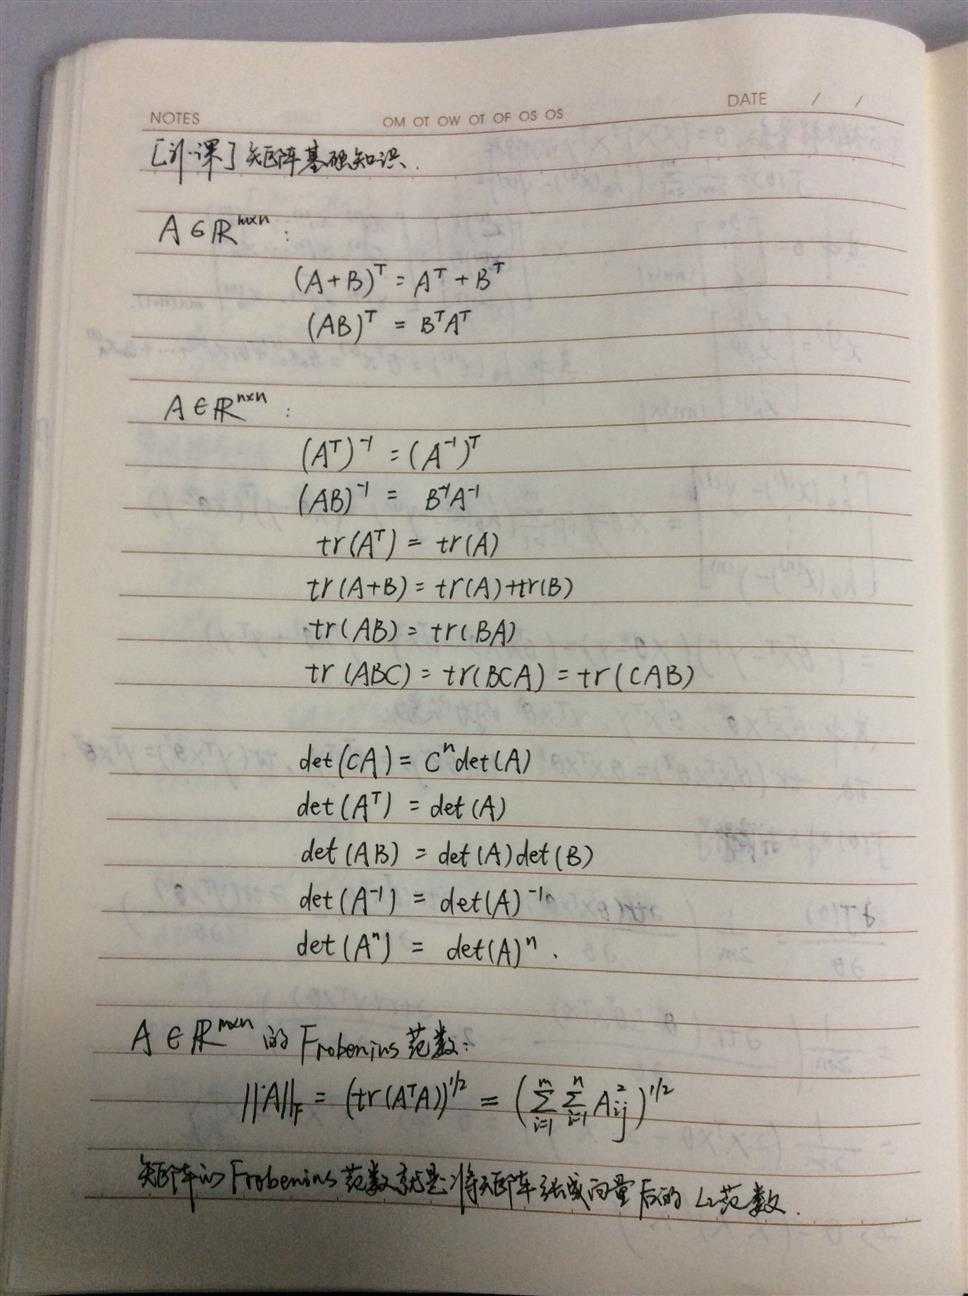 NOTES OM OT OW OT OF OS OS DATE / /
[补课] 矩阵基础知识.
A∈ℝᵐˣⁿ:
(A+B)ᵀ = Aᵀ + Bᵀ
(AB)ᵀ = BᵀAᵀ
A∈ℝⁿˣⁿ:
(Aᵀ)⁻¹ = (A⁻¹)ᵀ
(AB)⁻¹ = B⁻¹A⁻¹
tr(Aᵀ) = tr(A)
tr(A+B) = tr(A)+tr(B)
tr(AB) = tr(BA)
tr(ABC) = tr(BCA) = tr(CAB)
det(cA) = cⁿdet(A)
det(Aᵀ) = det(A)
det(AB) = det(A)det(B)
det(A⁻¹) = det(A)⁻¹
det(Aⁿ) = det(A)ⁿ.
A∈ℝᵐˣⁿ的 Frobenius 范数:
||A||_F = (tr(AᵀA))^1/2 = (∑_{i=1}^m ∑_{i=1}^n A²ij)^1/2
矩阵的Frobenius范数就是将矩阵张成向量后的L₂范数.